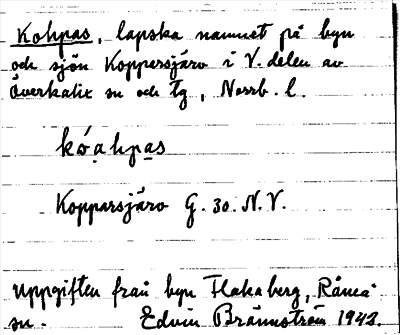 Kohpas, lapska namnet på byn
och sjön Koppersjärv i V. delen av
Överkalix sn och tg, Norrb. l.
kóa̱hpa̱s
Kopparsjärv G. 30. N.V.
Uppgiften från byn Flakaberg, Råneå
sn. Edvin Brännström 1942.